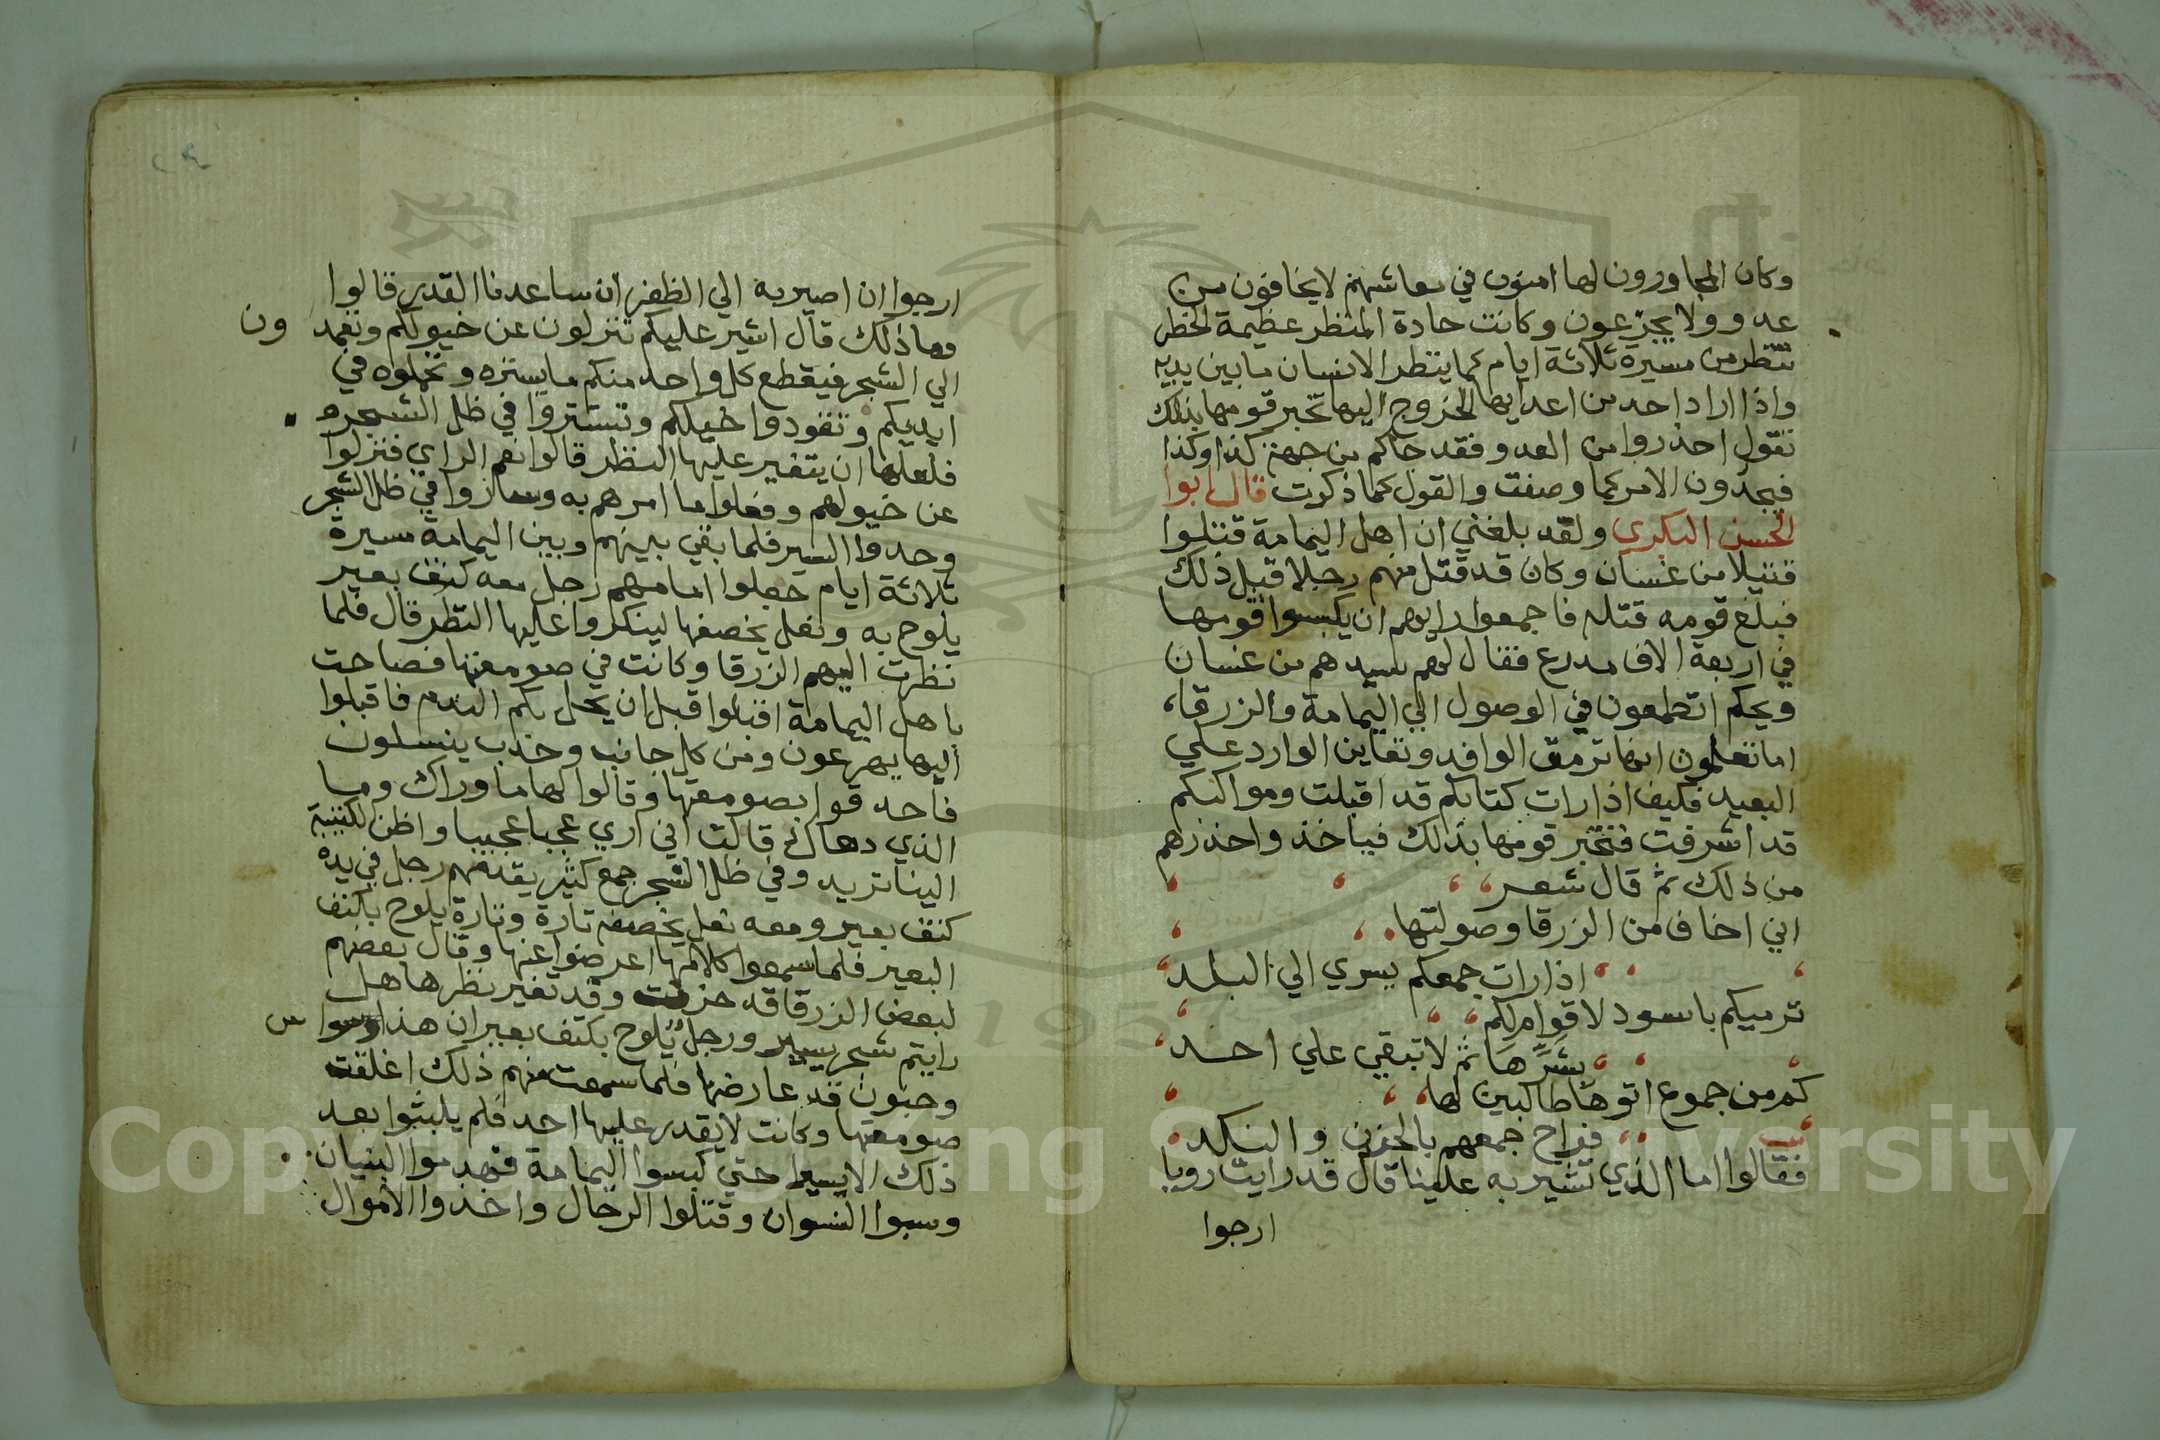 وكان المجاورون لها امنون في معاشهم لا يخافون من
عدو ولا يجزعون وكانت حادة المنظر عظيمة الخطر
تنظر من مسيرة ثلاثة ايام كما ينظر الانسان ما بين يديه
واذا اراد احد من اعدايها الخروج اليها تخبر قومها بذلك
تقول احذروا من العدو فقد جاكم من جهة كذا وكذا
فيجدون الامر كما وصفت والقول كما ذكرت قال ابوا
الحسن البكري ولقد بلغني ان اهل اليمامة قتلوا
قتيلا من غسان وكان قد قتل منهم رجلا قبل ذلك
فبلغ قومه قتله فاجمعوا رايهم ان يكبسوا قومها
في اربعة الاف مدرع فقال لهم سيدهم من غسان
ويحكم اتطمعون في الوصول الي اليمامة والزرقا
اما تعلمون انها ترمق الوافد وتعاين الوارد علي
البعيد فكيف اذا رات كتايبكم قد اقبلت ومواكبكم
قد اشرفت فتخبر قومها بذلك فياخذوا حذرهم
من ذلك ثم قال شعر
اني اخاف من الزرقا وصولتها
اذا رات جمعكم يسري الي البلد
ترميكم باسود لا قوام لكم
بشرها ثم لا تبقي علي احد
كم من جموع اتوها طالبين لها
فراح جمعهم بالحزن والنكد
فقالوا اما الذي تشير به علينا قال قد رايت رويا
ارجوا
ارجوا ان اصير به الي الظفر ان ساعدنا القدير قالوا
وما ذلك قال اشير عليكم تنزلون عن خيولكم وتعمد ون
الي الشجر فيقطع كل واحد منكم ما يستره وتحملوه في
ايديكم وتقودوا خيلكم وتستتروا في ظل الشجر
فلعلها ان يتغير عليها النظر قالوا نعم الراي فنزلوا
عن خيولهم وفعلوا ما امرهم به وساروا في ظل الشجر
وجدوا السير فلما بقي بينهم وبين اليمامة مسيرة
ثلاثة ايام جعلوا امامهم رجل معه كتف بعير
يلوح به ونعل يخصفها لينكروا عليها النظر قال فلما
نظرت اليهم الزرقا وكانت في صومعتها فصاحت
يا هل اليمامة اقبلوا قبل ان يحل بكم الندم فاقبلوا
اليها يهرعون ومن كل جانب وحدب ينسلون
فاحدقوا بصومعتها وقالوا لها ما وراك وما
الذي دهاك قالت اني اري عجبا عجيبا واظن الكتيبة
الينا تريد وفي ظل الشجر جمع كثير يقدمهم رجل في يده
كتف بعير ومعه نعل يخصفه تارة وتارة يلوح بكتف
البعير فلما سمعوا كلامها اعرضوا عنها وقال بعضهم
لبعض الزرقا قد خرفت وقد تغير نظرها هل
رايتم شجر يسير ورجل يلوح بكتف بعير ان هذا وسوا س
وجنون قد عارضها فلما سمعت منهم ذلك اغلقت
صومعتها وكانت لا يقدر عليها احد فلم يلبثوا بعد
ذلك الا يسيرا حتي كبسوا اليمامة فهدموا البنيان
وسبوا النسوان وقتلوا الرجال واخذوا الاموال